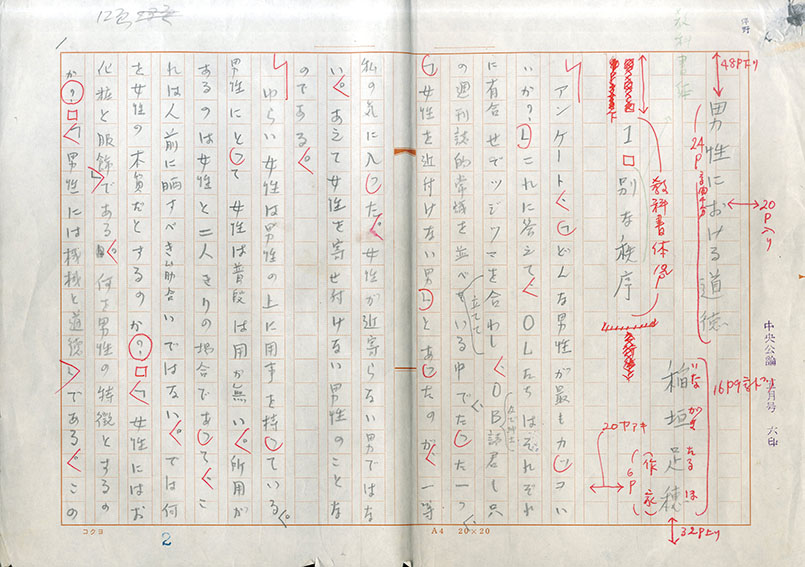 男性における道徳
稲垣足穂
いながきたるほ
(作家)
1 別な秩序
アンケート、「どんな男性が最もカッコい
いか?」これに答えて、OLたちはそれぞれ
に有合せでツジツマを合わし、OB諸君も只
の週刊誌的常域を並べている中でたった一つ、
「女性を近付けない男」とあったのが、一等
私の気に入った。女性が近寄らない男ではな
い。あえて女性を寄せ付けない男性のことな
のである。
ゆらい女性は男性の上に用事を持っている。
男性にとって女性は普段は用が無い。所用が
あるのは女性と二人きりの場合であって、こ
れは人前に晒すべき筋合いではない。では何
を女性の本質だとするのか?女性にはお
化粧と服飾である。何を男性の特徴とするの
か?「男性には機械と道徳」である。この
教科書体
48P下り
24P
20P入り
16P9ポ
32P下り
20P下アキ
6P
立てて
中央公論
月号
六印
コクヨ
2
A4 20×20